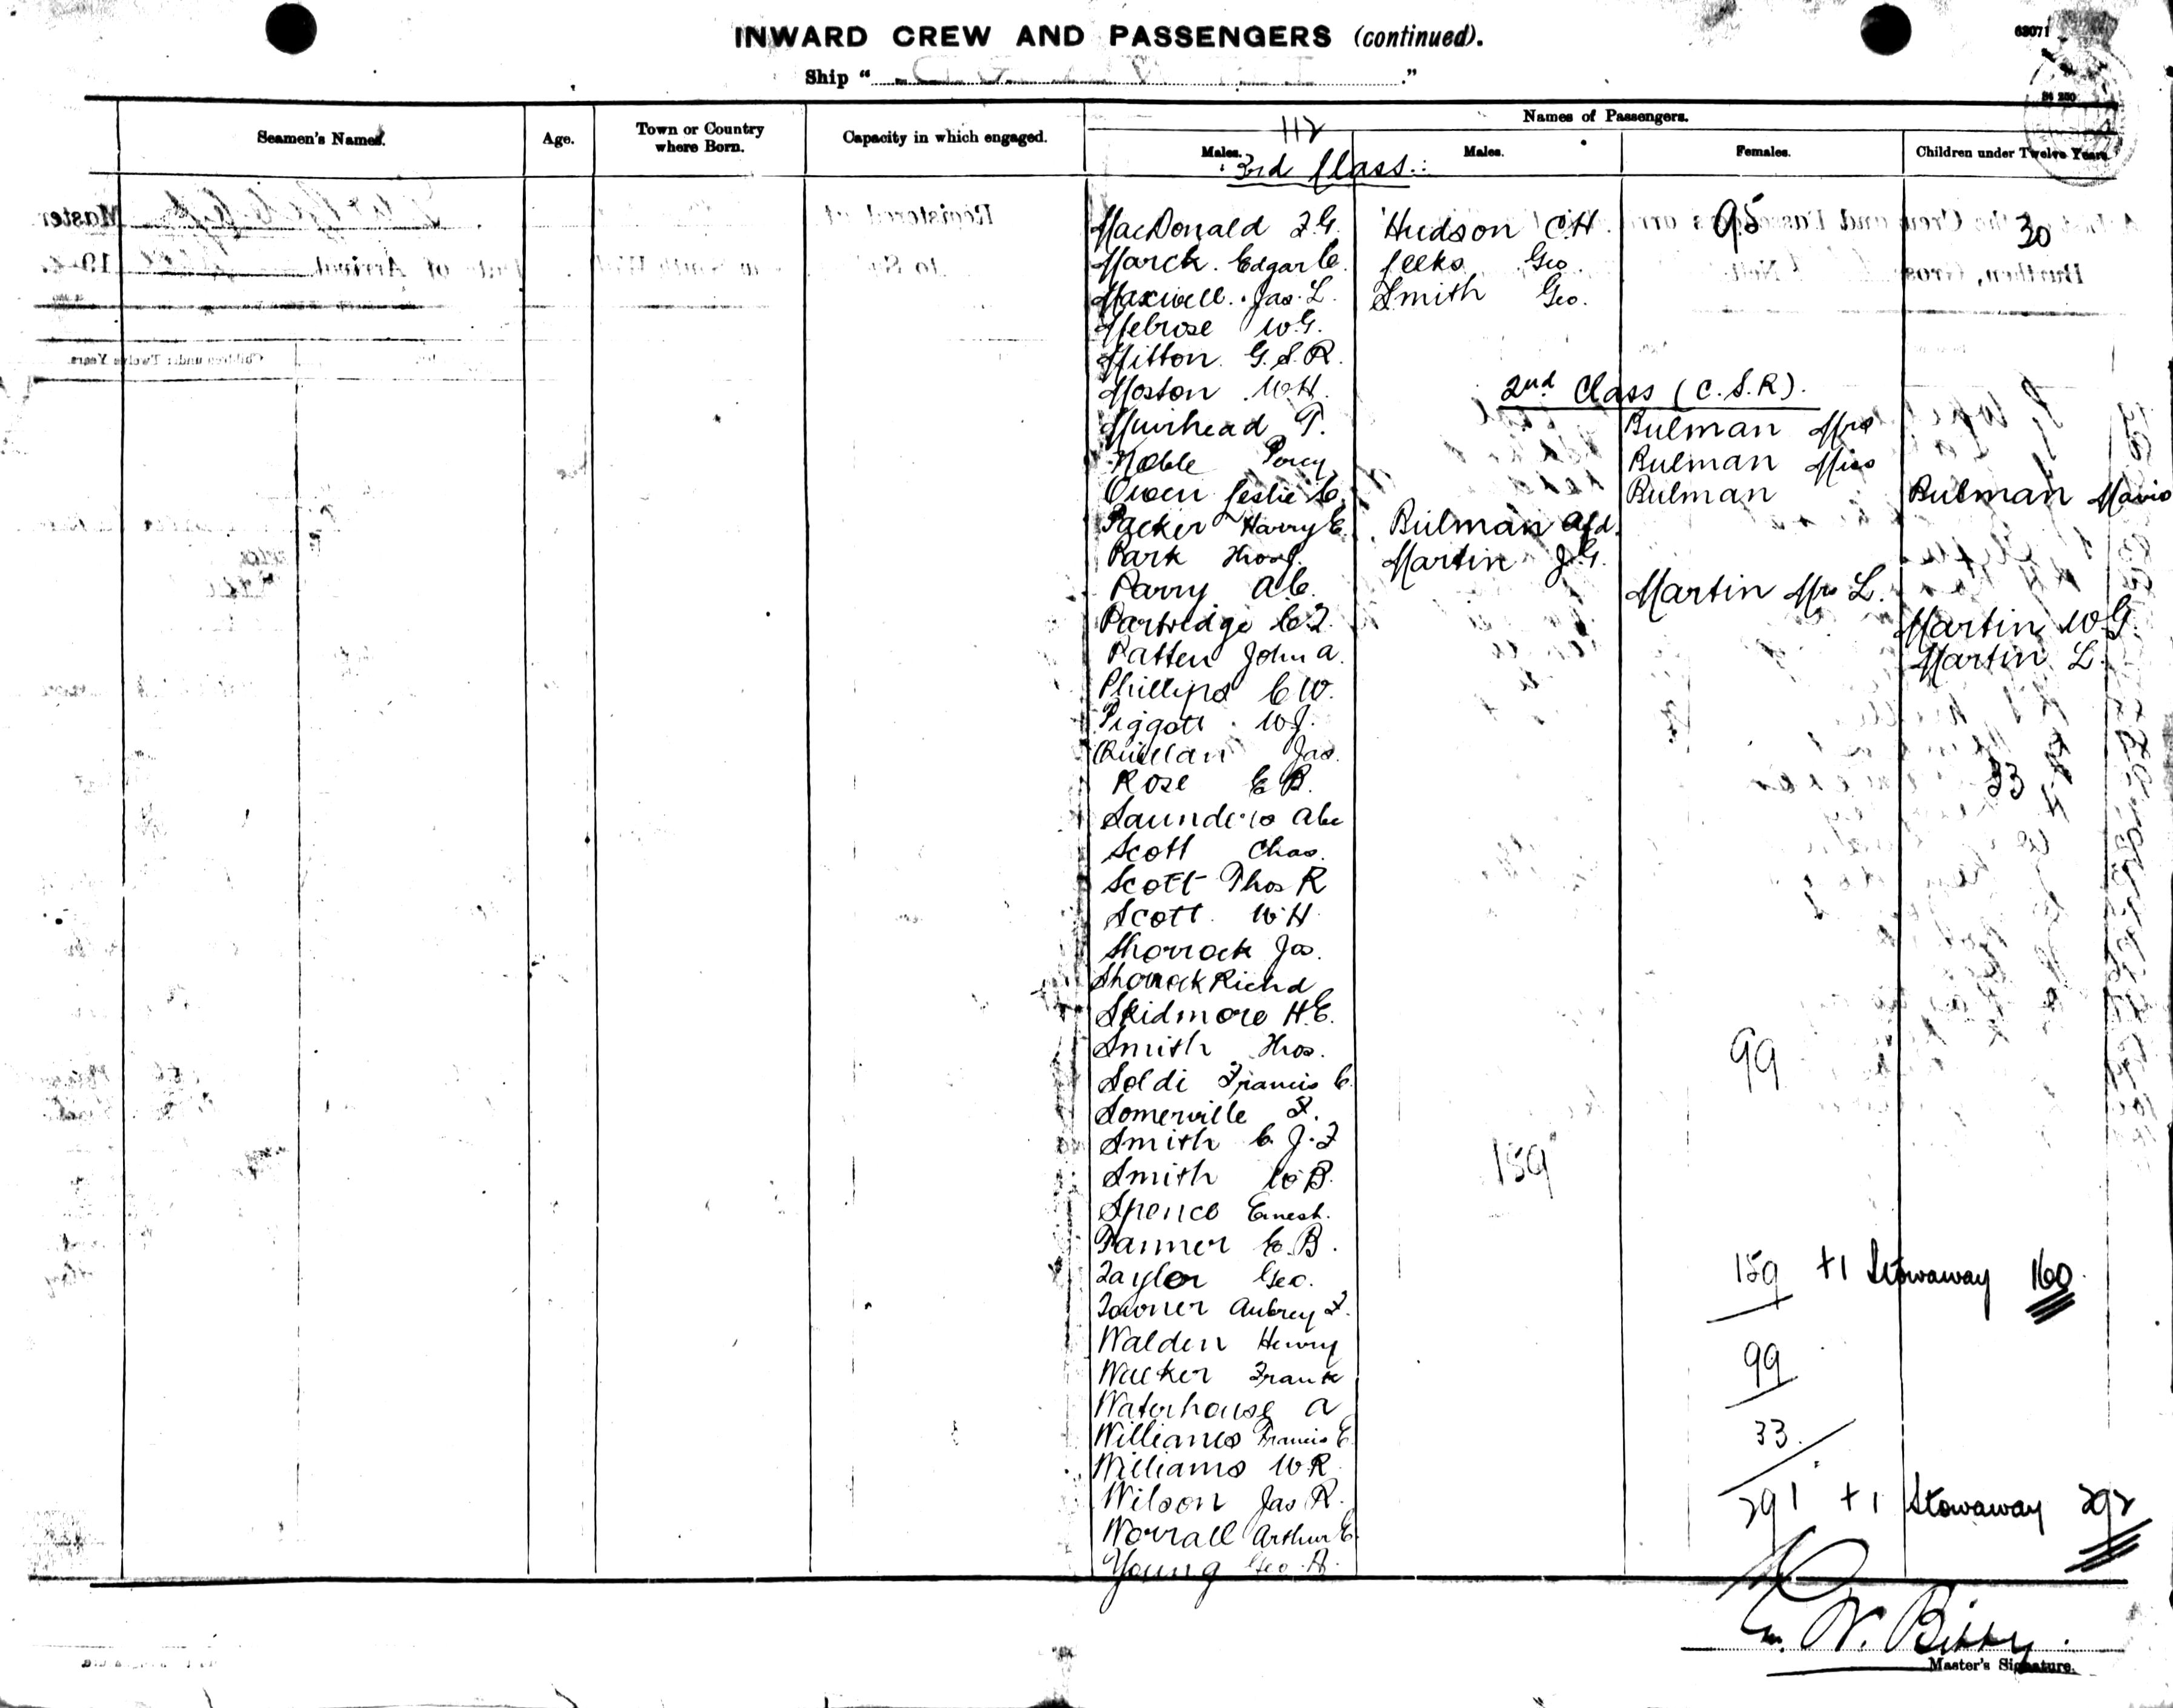 INWARD CREW AND PASSENGERS (continued).
63071
Ship " "
Seamen's Names.
Age.
Town or Country where Born.
Capacity in which engaged.
Names of Passengers.
112
Males.
Males.
Females.
Children under Twelve Years.
3rd Class.
MacDonald F.G.
March. Edgar C.
Maxwell. Jas. L.
Melrose W.G.
Mitton G.S.R.
Moston W.H.
Muirhead T.
Noble Percy
Owen Leslie C.
Packer Harry E.
Park Thos J.
Parry A.C.
Partridge C.F.
Patten John A.
Phillips C.W.
Piggott W.J.
Quillan Jas.
Rose E.B.
Saunders Alec
Scott Chas.
Scott Thos R
Scott. W.H.
Shorrock Jas.
Shorrock Richd
Skidmore H.E.
Smith Thos.
Soldi Francis C.
Somerville F.
Smith C.J.F
Smith W.B.
Spence Ernest.
Tanner E.B.
Taylor Geo.
Towner Aubrey F.
Walden Henry
Walker Frank
Waterhouse A
Williams Francis E.
Williams W.R.
Wilson Jas R.
Worrall Arthur E.
Young Geo. A.
Hudson C.H.
Leeks Geo
Smith Geo.
95
30
2nd Class (C.S.R).
Bulman Mrs
Bulman Miss
Bulman
Bulman Mavis
Bulman Alfd.
Martin J.G.
Martin Mrs L.
Martin W.G.
Martin L.
33
99
159
159 +1 Stowaway 160
99
33.
291 +1 Stowaway 292
Master's Signature.